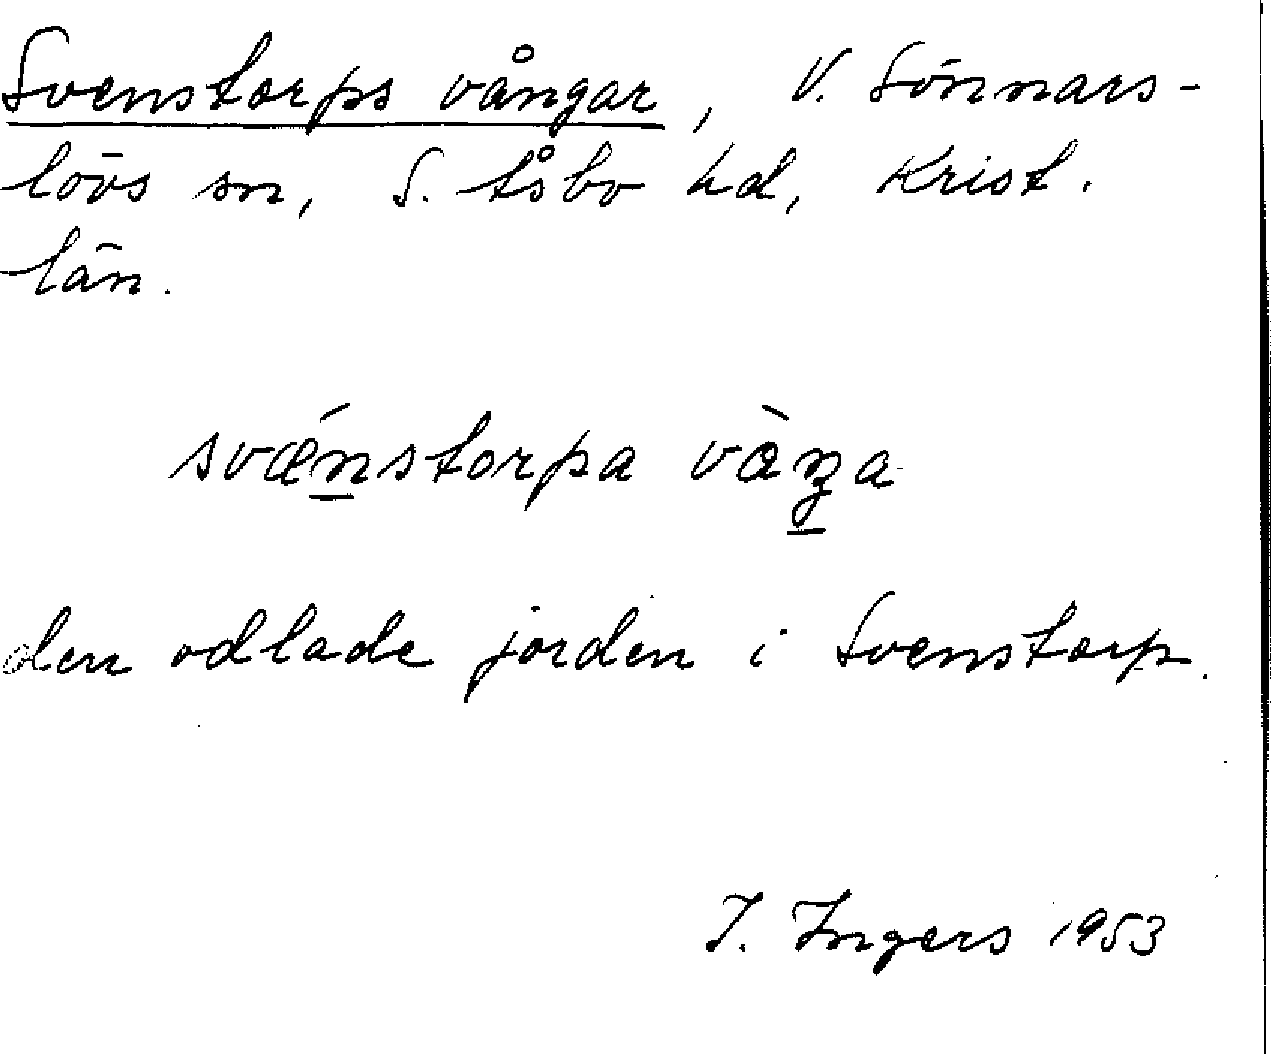 Svenstorps vångar, V. Sönnars-
lövs sn, S. Åsbo hd, Krist.
län.
svǽnstorpa vàŋa
den odlade jorden i Svenstorp.
I. Ingers 1953